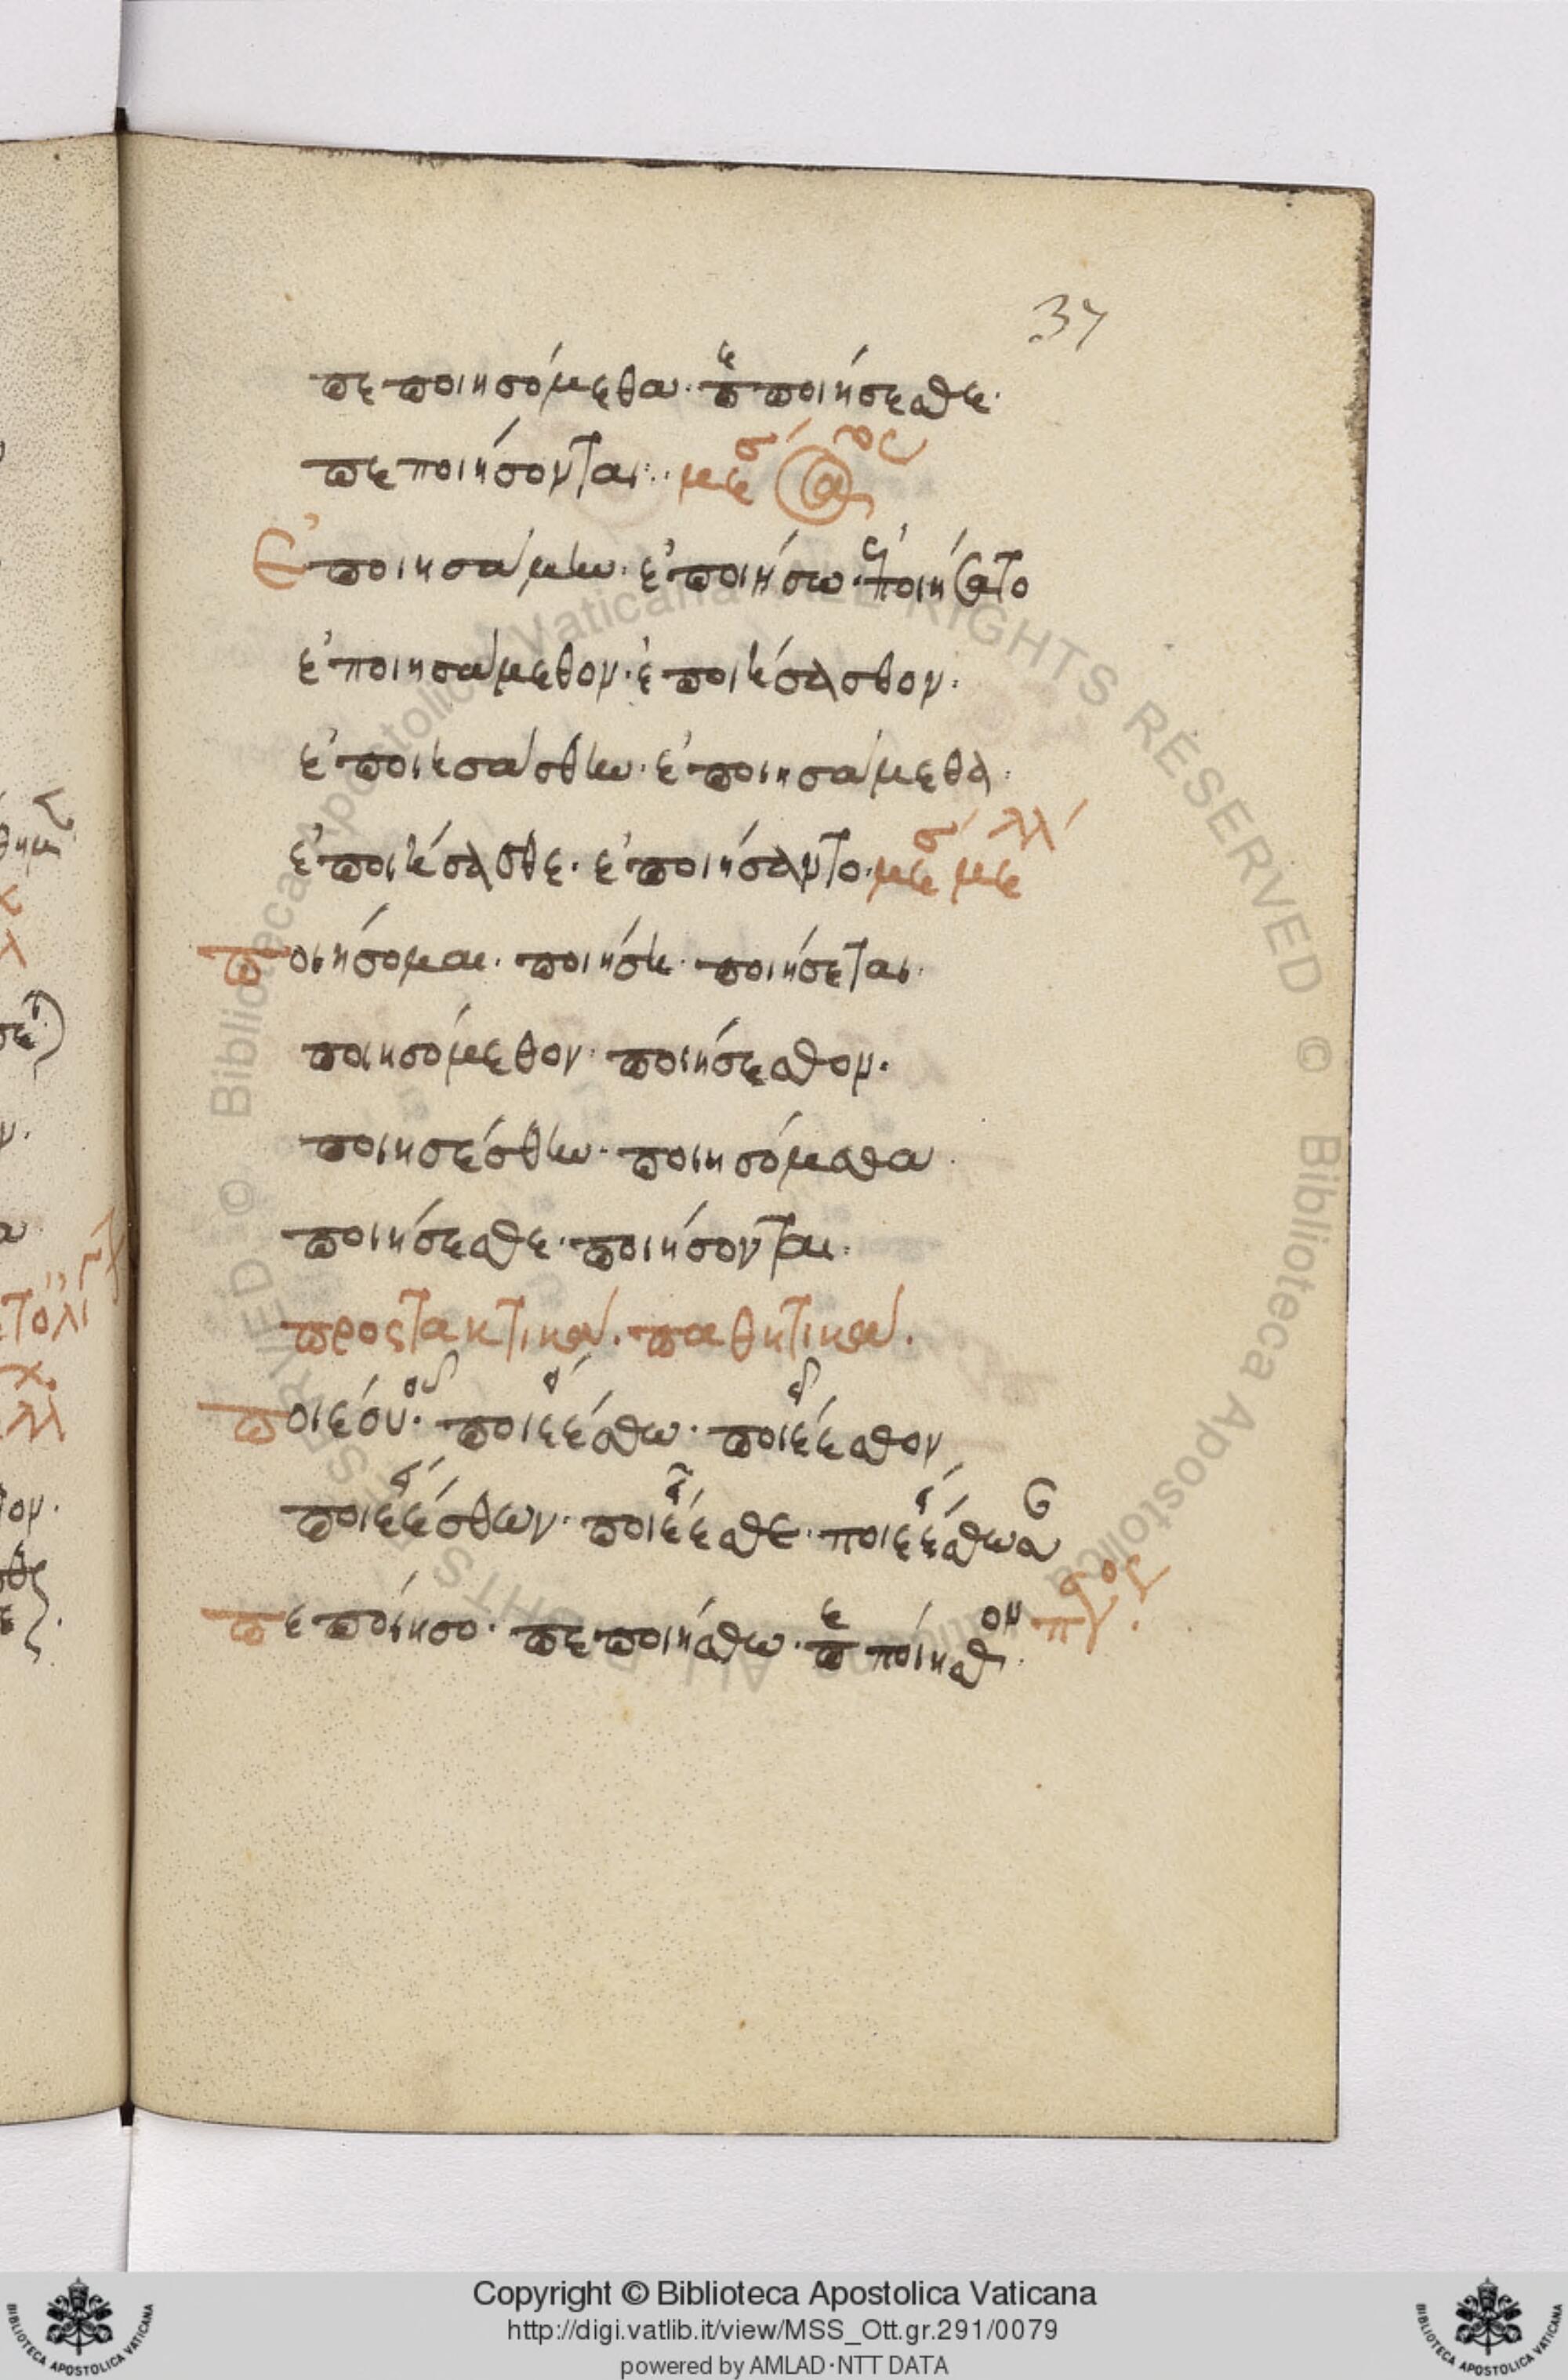 37
πεποιησόμεθα· πεποιήσεσθε·
πεποιήσονται·
ἐποιησάμην· ἐποιήσω· ἐποιήσατο
ἐποιησάμεθον· ἐποιήσασθον·
ἐποιησάσθην· ἐποιησάμεθα·
ἐποιήσασθε· ἐποιήσαντο·
ποιήσομαι· ποιήσῃ· ποιήσεται·
ποιησόμεθον· ποιήσεσθον·
ποιησέσθην· ποιησόμεσθα·
ποιήσεσθε· ποιήσονται·
προστακτικά· παθητικά·
ποιέου· ποιεέσθω· ποιέεσθον
ποιεέσθων· ποιέεσθε· ποιεέσθωσαν
πεποίησο· πεποιήσθω· πεποίησθον
Copyright © Biblioteca Apostolica Vaticana
http://digi.vatlib.it/view/MSS_Ott.gr.291/0079
powered by AMLAD·NTT DATA